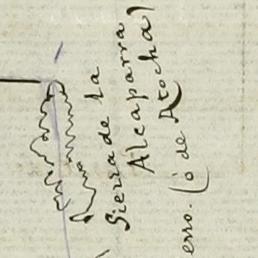 Sierra de la
Alcaparra
(ó de Atocha)
erro.